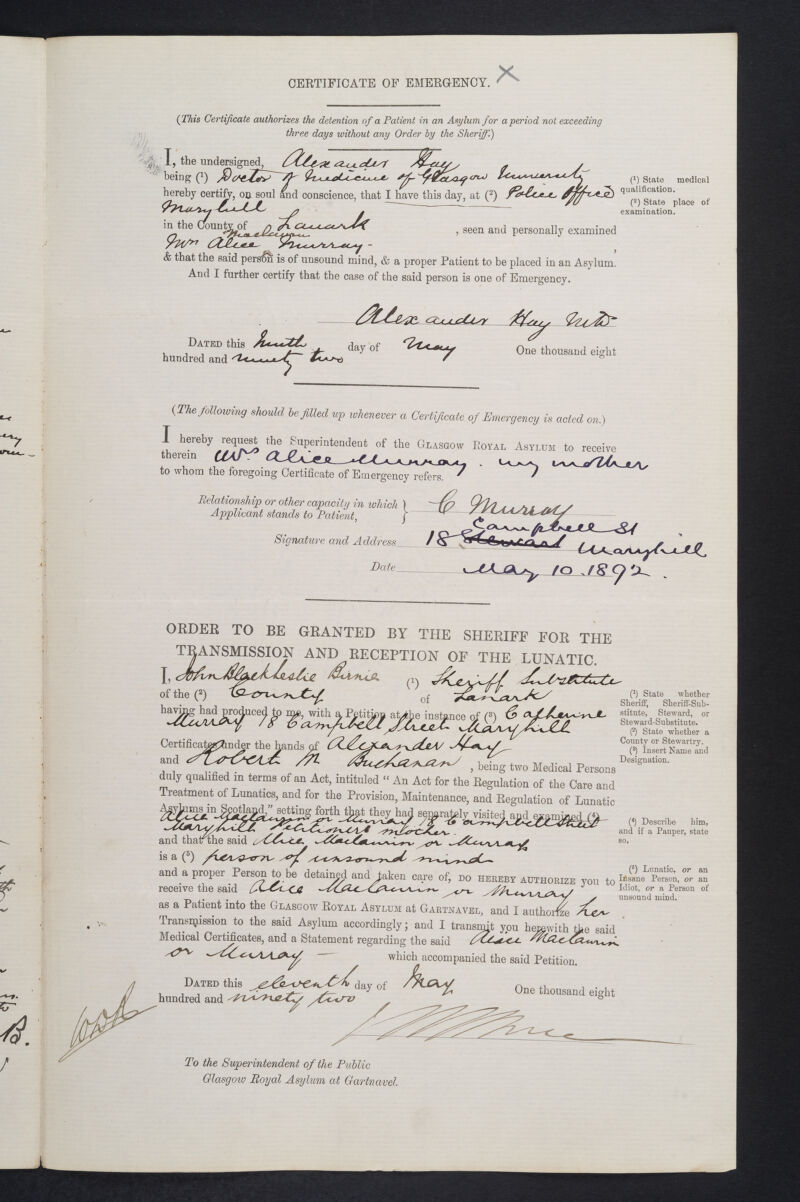 CERTIFICATE OF EMERGENCY. X
(This Certificate authorizes the detention of a Patient in an Asylum for a period not exceeding
three days without any Order by the Sheriff.)
I, the undersigned, Alexander Hay
being (1) Doctor of Medicine of Glasgow University
hereby certify, on soul and conscience, that I have this day, at (2) Police Office
Maryhill
in the County of Lanark , seen and personally examined
Maclaurin
Mrs Alice Murray - ,
& that the said person is of unsound mind, & a proper Patient to be placed in an Asylum.
And I further certify that the case of the said person is one of Emergency.
(1) State medical
qualification.
(2) State place of
examination.
Alexander Hay M.D.
DATED this Ninth day of May One thousand eight
hundred and ninety two
(The following should be filled up whenever a Certificate of Emergency is acted on.)
I hereby request the Superintendent of the GLASGOW ROYAL ASYLUM to receive
therein Mrs Alice Murray. my mother
to whom the foregoing Certificate of Emergency refers.
Relationship or other capacity in which
Applicant stands to Patient, } C Murray
Campbell St
Signature and Address 18 Stewart Maryhill
Date May 10. 1892.
ORDER TO BE GRANTED BY THE SHERIFF FOR THE
TRANSMISSION AND RECEPTION OF THE LUNATIC.
I, John Black Leslie Birnie (1) Sheriff Substitute
of the (2) County of Lanark
having had produced to me, with a Petition at the instance of (3) Catherine
Murray 18 Campbell Street Maryhill
Certificates under the hands of Alexander Hay
and Robert M Buchanan , being two Medical Persons
duly qualified in terms of an Act, intituled "An Act for the Regulation of the Care and
Treatment of Lunatics, and for the Provision, Maintenance, and Regulation of Lunatic
Asylums in Scotland," setting forth that they had separately visited and examined (4)
Alice Maclaurin or Murray 18 Campbell Street
Maryhill Petitioners mother.
and that the said Alice Maclaurin or Murray
is a (5) person of unsound mind
and a proper Person to be detained and taken care of, DO HEREBY AUTHORIZE you to
receive the said Alice Maclaurin or Murray
as a Patient into the GLASGOW ROYAL ASYLUM AT GARTNAVEL, and I authorize her
Transmission to the said Asylum accordingly; and I transmit you herewith the said
Medical Certificates, and a Statement regarding the said Alice Maclaurin
or Murray - which accompanied the said Petition.
(1) State whether
Sheriff, Sheriff-Sub-
stitute, Steward, or
Steward-Substitute.
(2) State whether a
County or Stewartry.
(3) Insert Name and
Designation.
(4) Describe him,
and if a Pauper, state
so.
(5) Lunatic, or an
Insane Person, or an
Idiot, or a Person of
unsound mind.
DATED this eleventh day of May One thousand eight
hundred and ninety two
To the Superintendent of the Public
Glasgow Royal Asylum at Gartnavel.